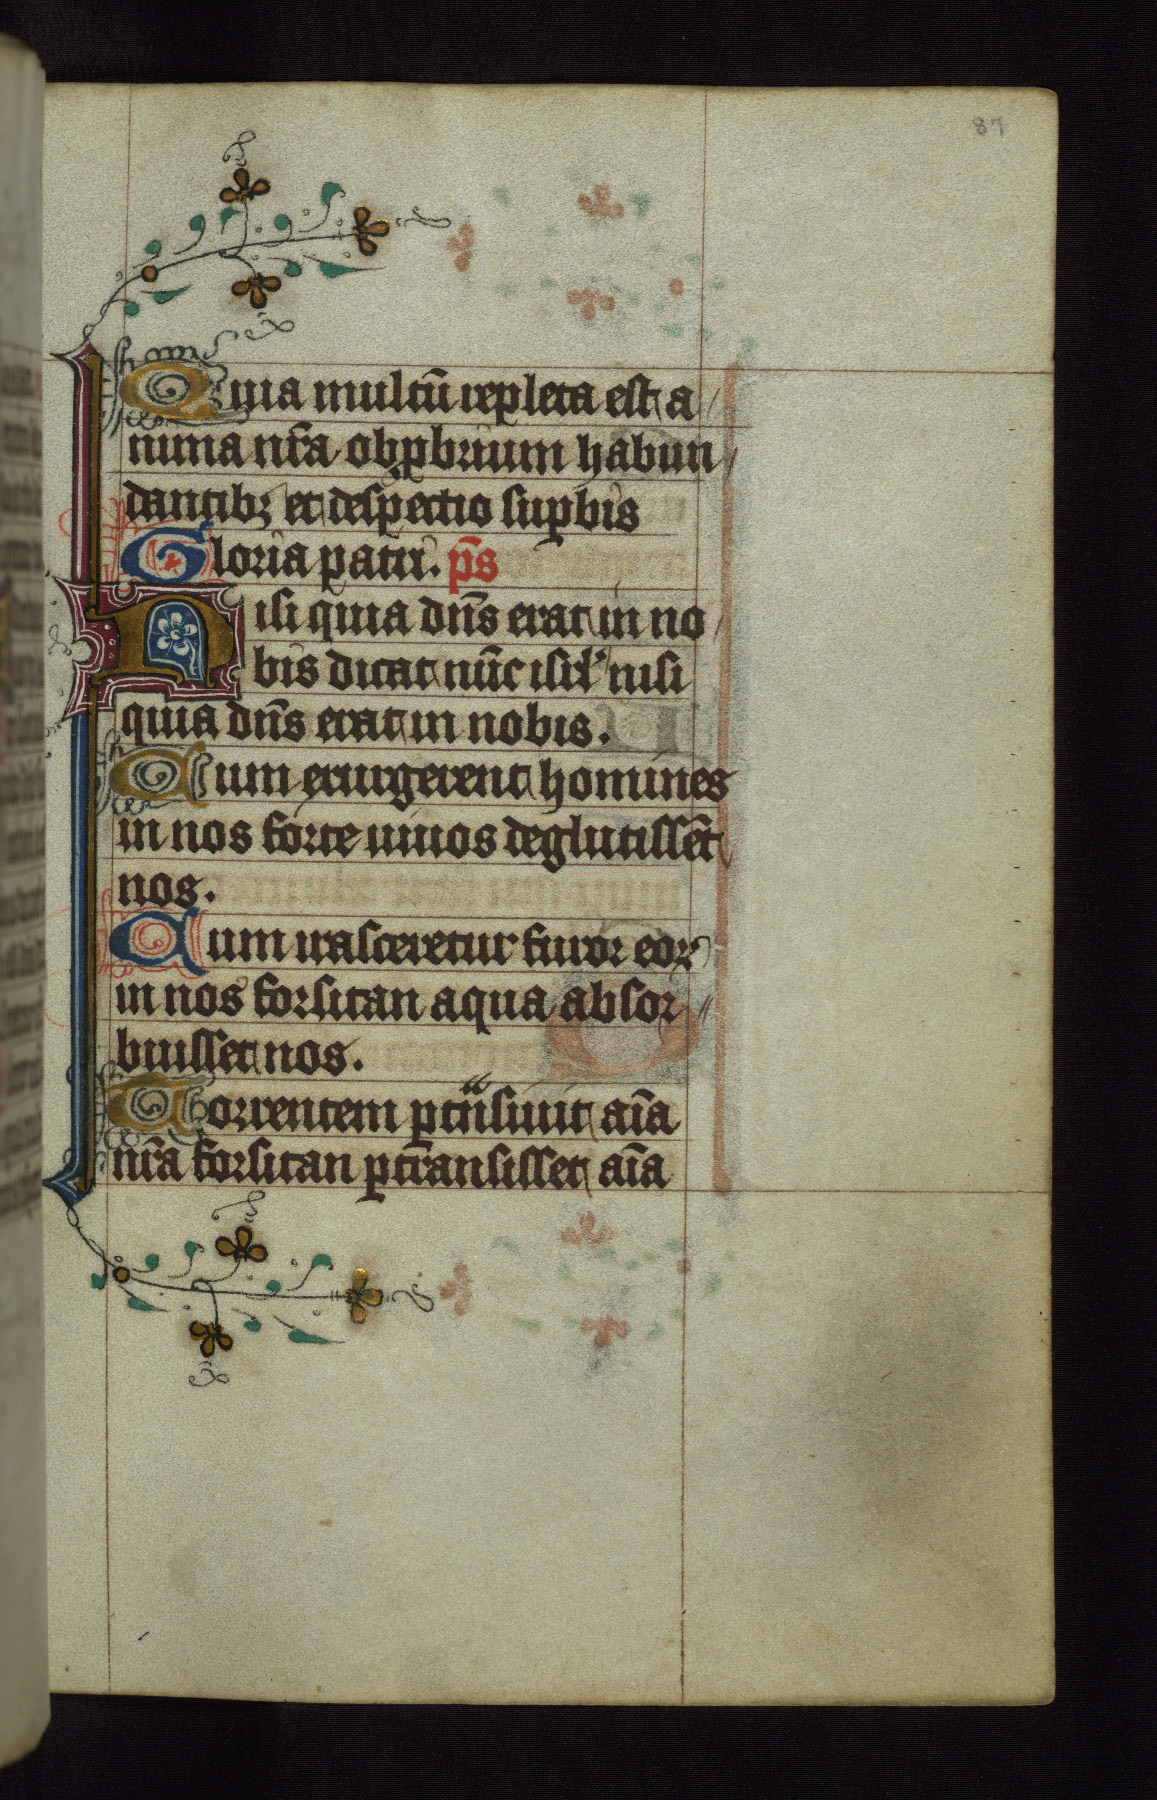 87
Quia multū repleta est a
nima nr̄a obp̱brium habun
dantibꝫ et despectio sup̱bis
Gloria patri. p̄s
Nisi quia dn̄s erat in no
bis dicat nūc isr̄l nisi
quia dn̄s erat in nobis.
Cum exurgerent homines
in nos forte uiuos deglutissēt
nos.
Cum irasceretur furor eoꝝ
in nos forsitan aqua absor
buisset nos.
Torrentem ꝑtn̄siuit aīa
nr̄a forsitan ꝑtransisset aīa